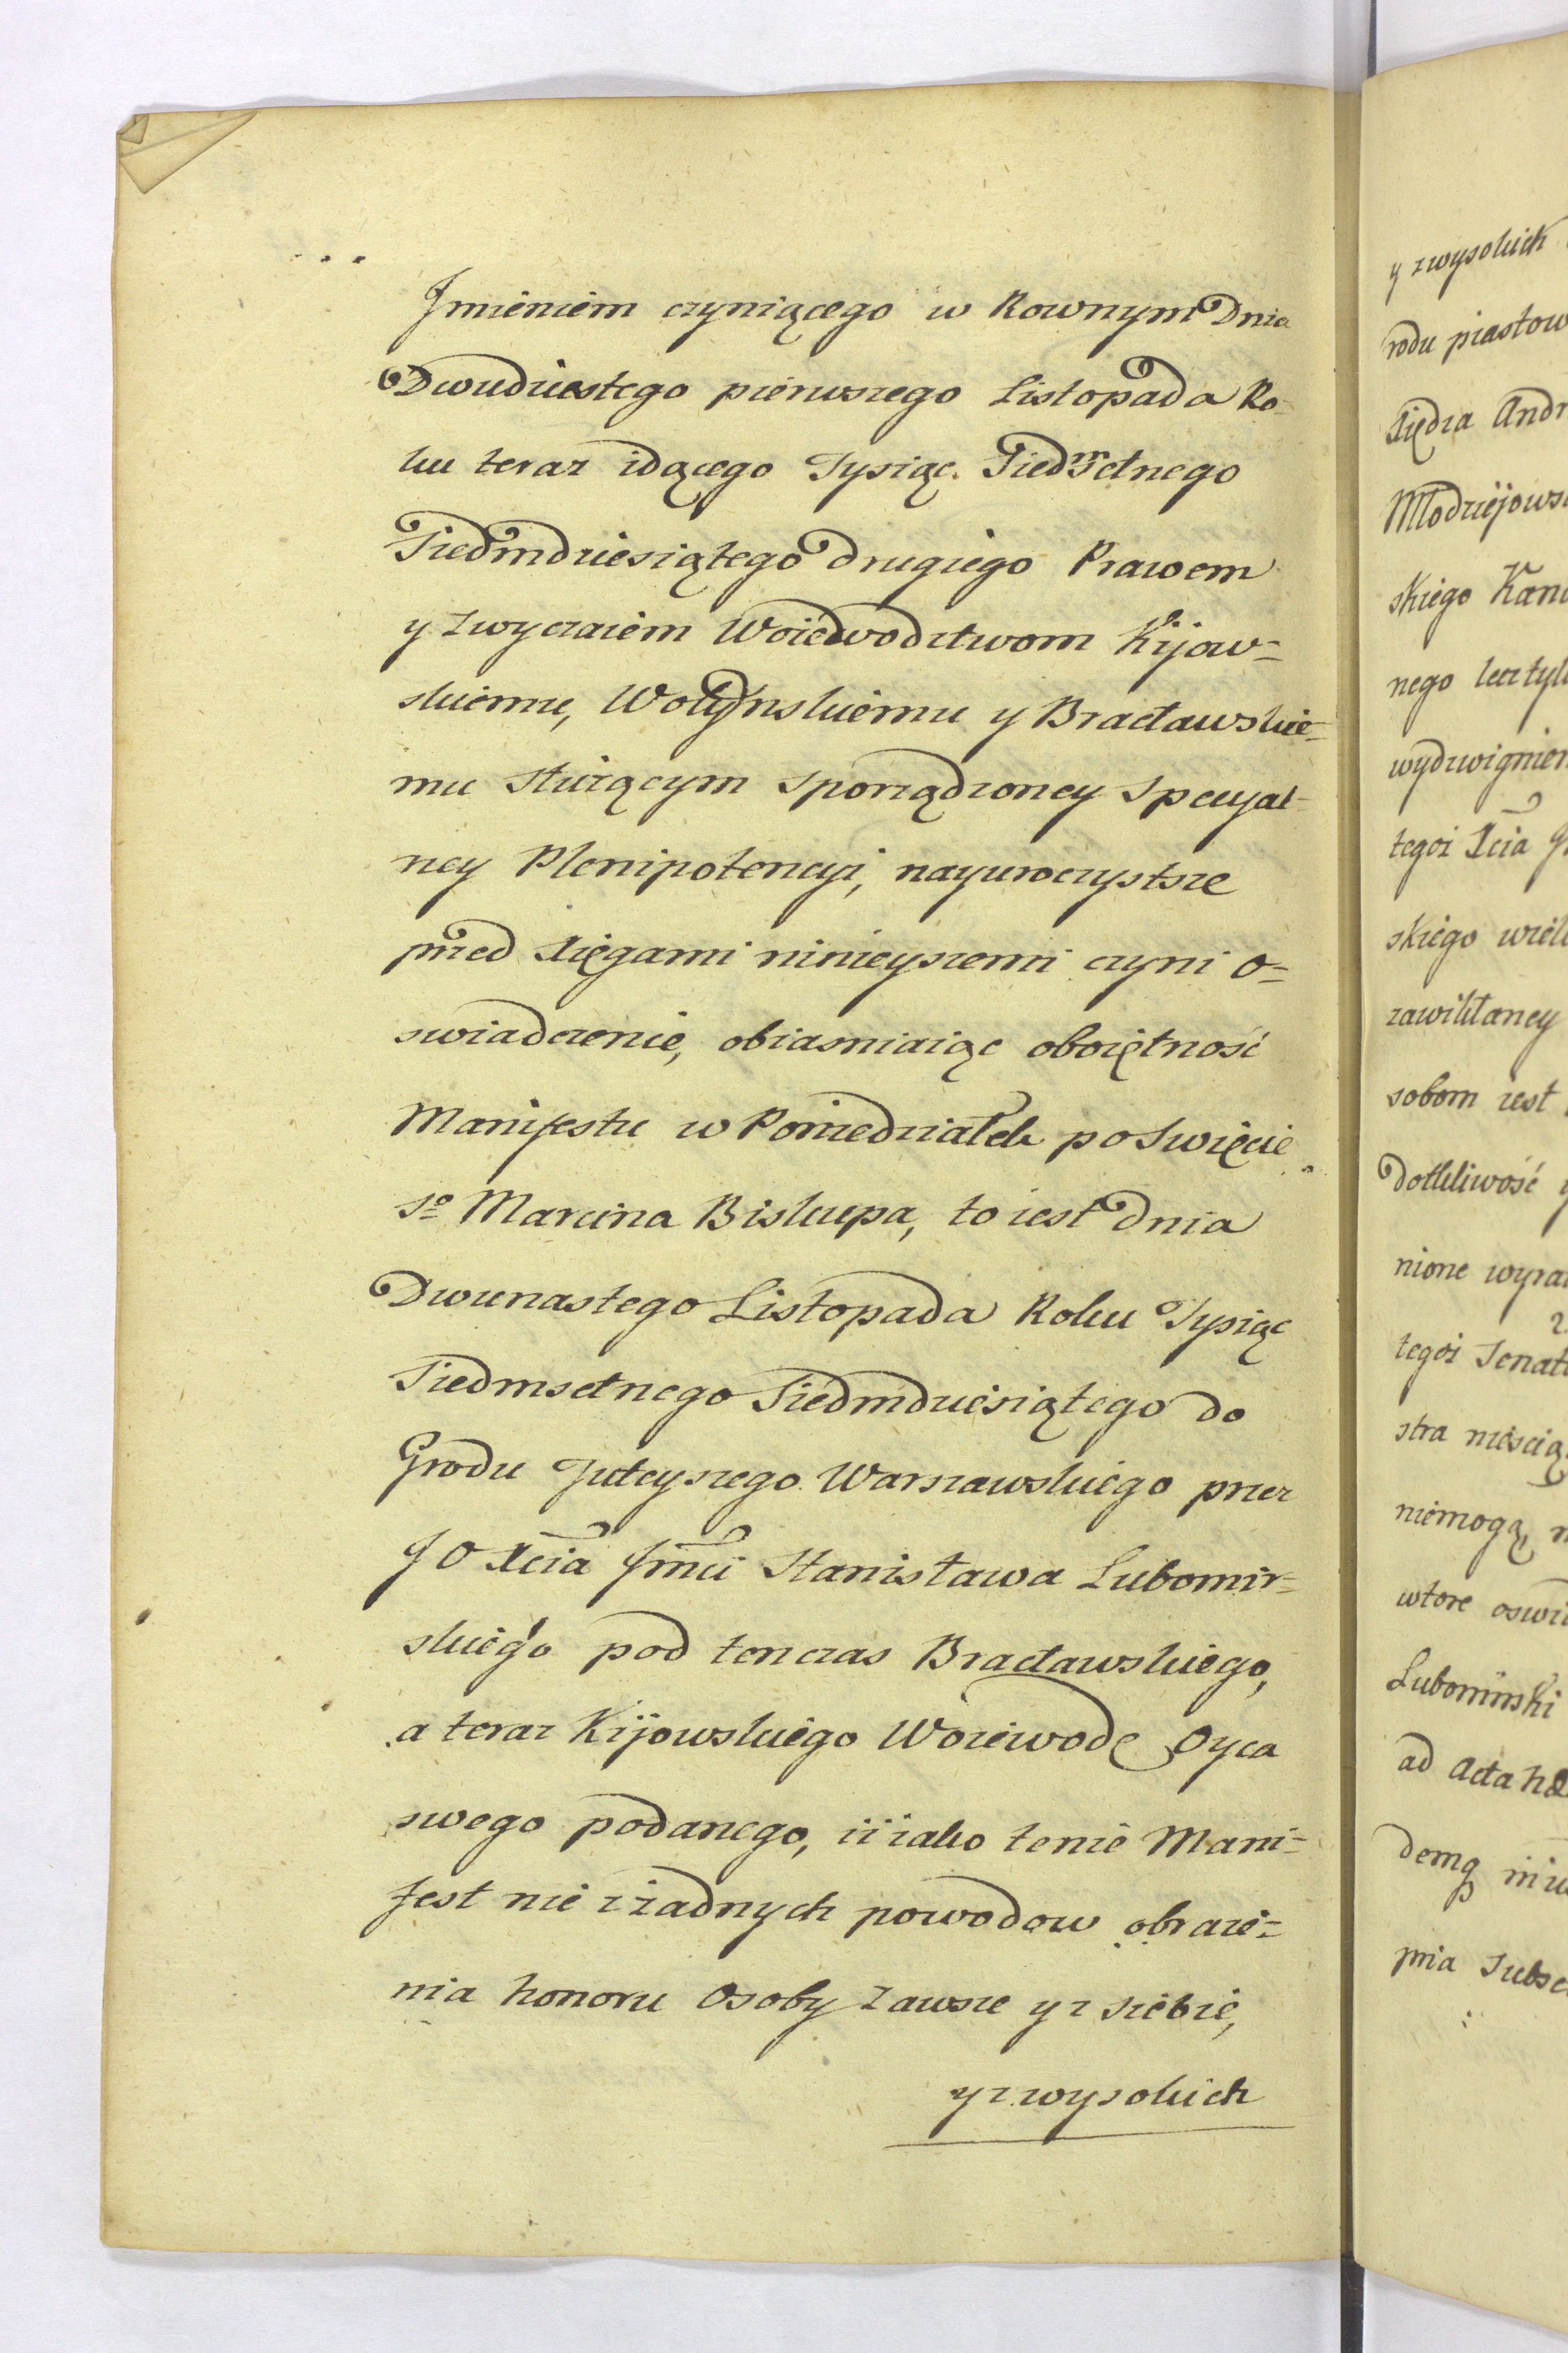 Jmieniem czyniącego w Rownym Dnia
Dwudziestego pierwszego Listopada Ro-
ku teraz idącego Tysiąc Siedmsetnego
Siedmdziesiątego drugiego Prawem
y zwyczaiem Woiewodztwom Kijow=
skiemu, Wołynskiemu y Bracławskie=
mu służącym sporządzoney specyal-
ney Plenipotencyi, nayuroczystsze
przed Xięgami ninieyszemi czyni o=
swiadczenie, obiasniaiąc oboiętność
Manifestu w Poniedziałek po Swięcie
So Marcina Biskupa, to iest Dnia
Dwunastego Listopada Roku Tysiąc
Siedmsetnego Siedmdziesiątego do
Grodu Tuteyszego Warszawskiego przez
J O Xcia Jmci Stanisława Lubomir=
skiego pod tenczas Bracławskiego,
a teraz Kijowskiego Woiewodę Oyca
swego podanego, iż iako tenże Mani=
fest nie z żadnych powodow obraże=
nia honoru Osoby zawsze y z siebie,
y z wysokich
y z wysokich
rodu piastow
Xiędza Andr
Młodziejows
skiego Kanc
nego lecz tyl
wydzwignien
tegoż Xcia
skiego wiel
zawikłaney
sobom iest
dotkliwość
nione wyra
tegoż Senat
stra niescią
niemogą,
wtore oswi
Lubomirski
ad Acta hæ
demq
pnia Subsc